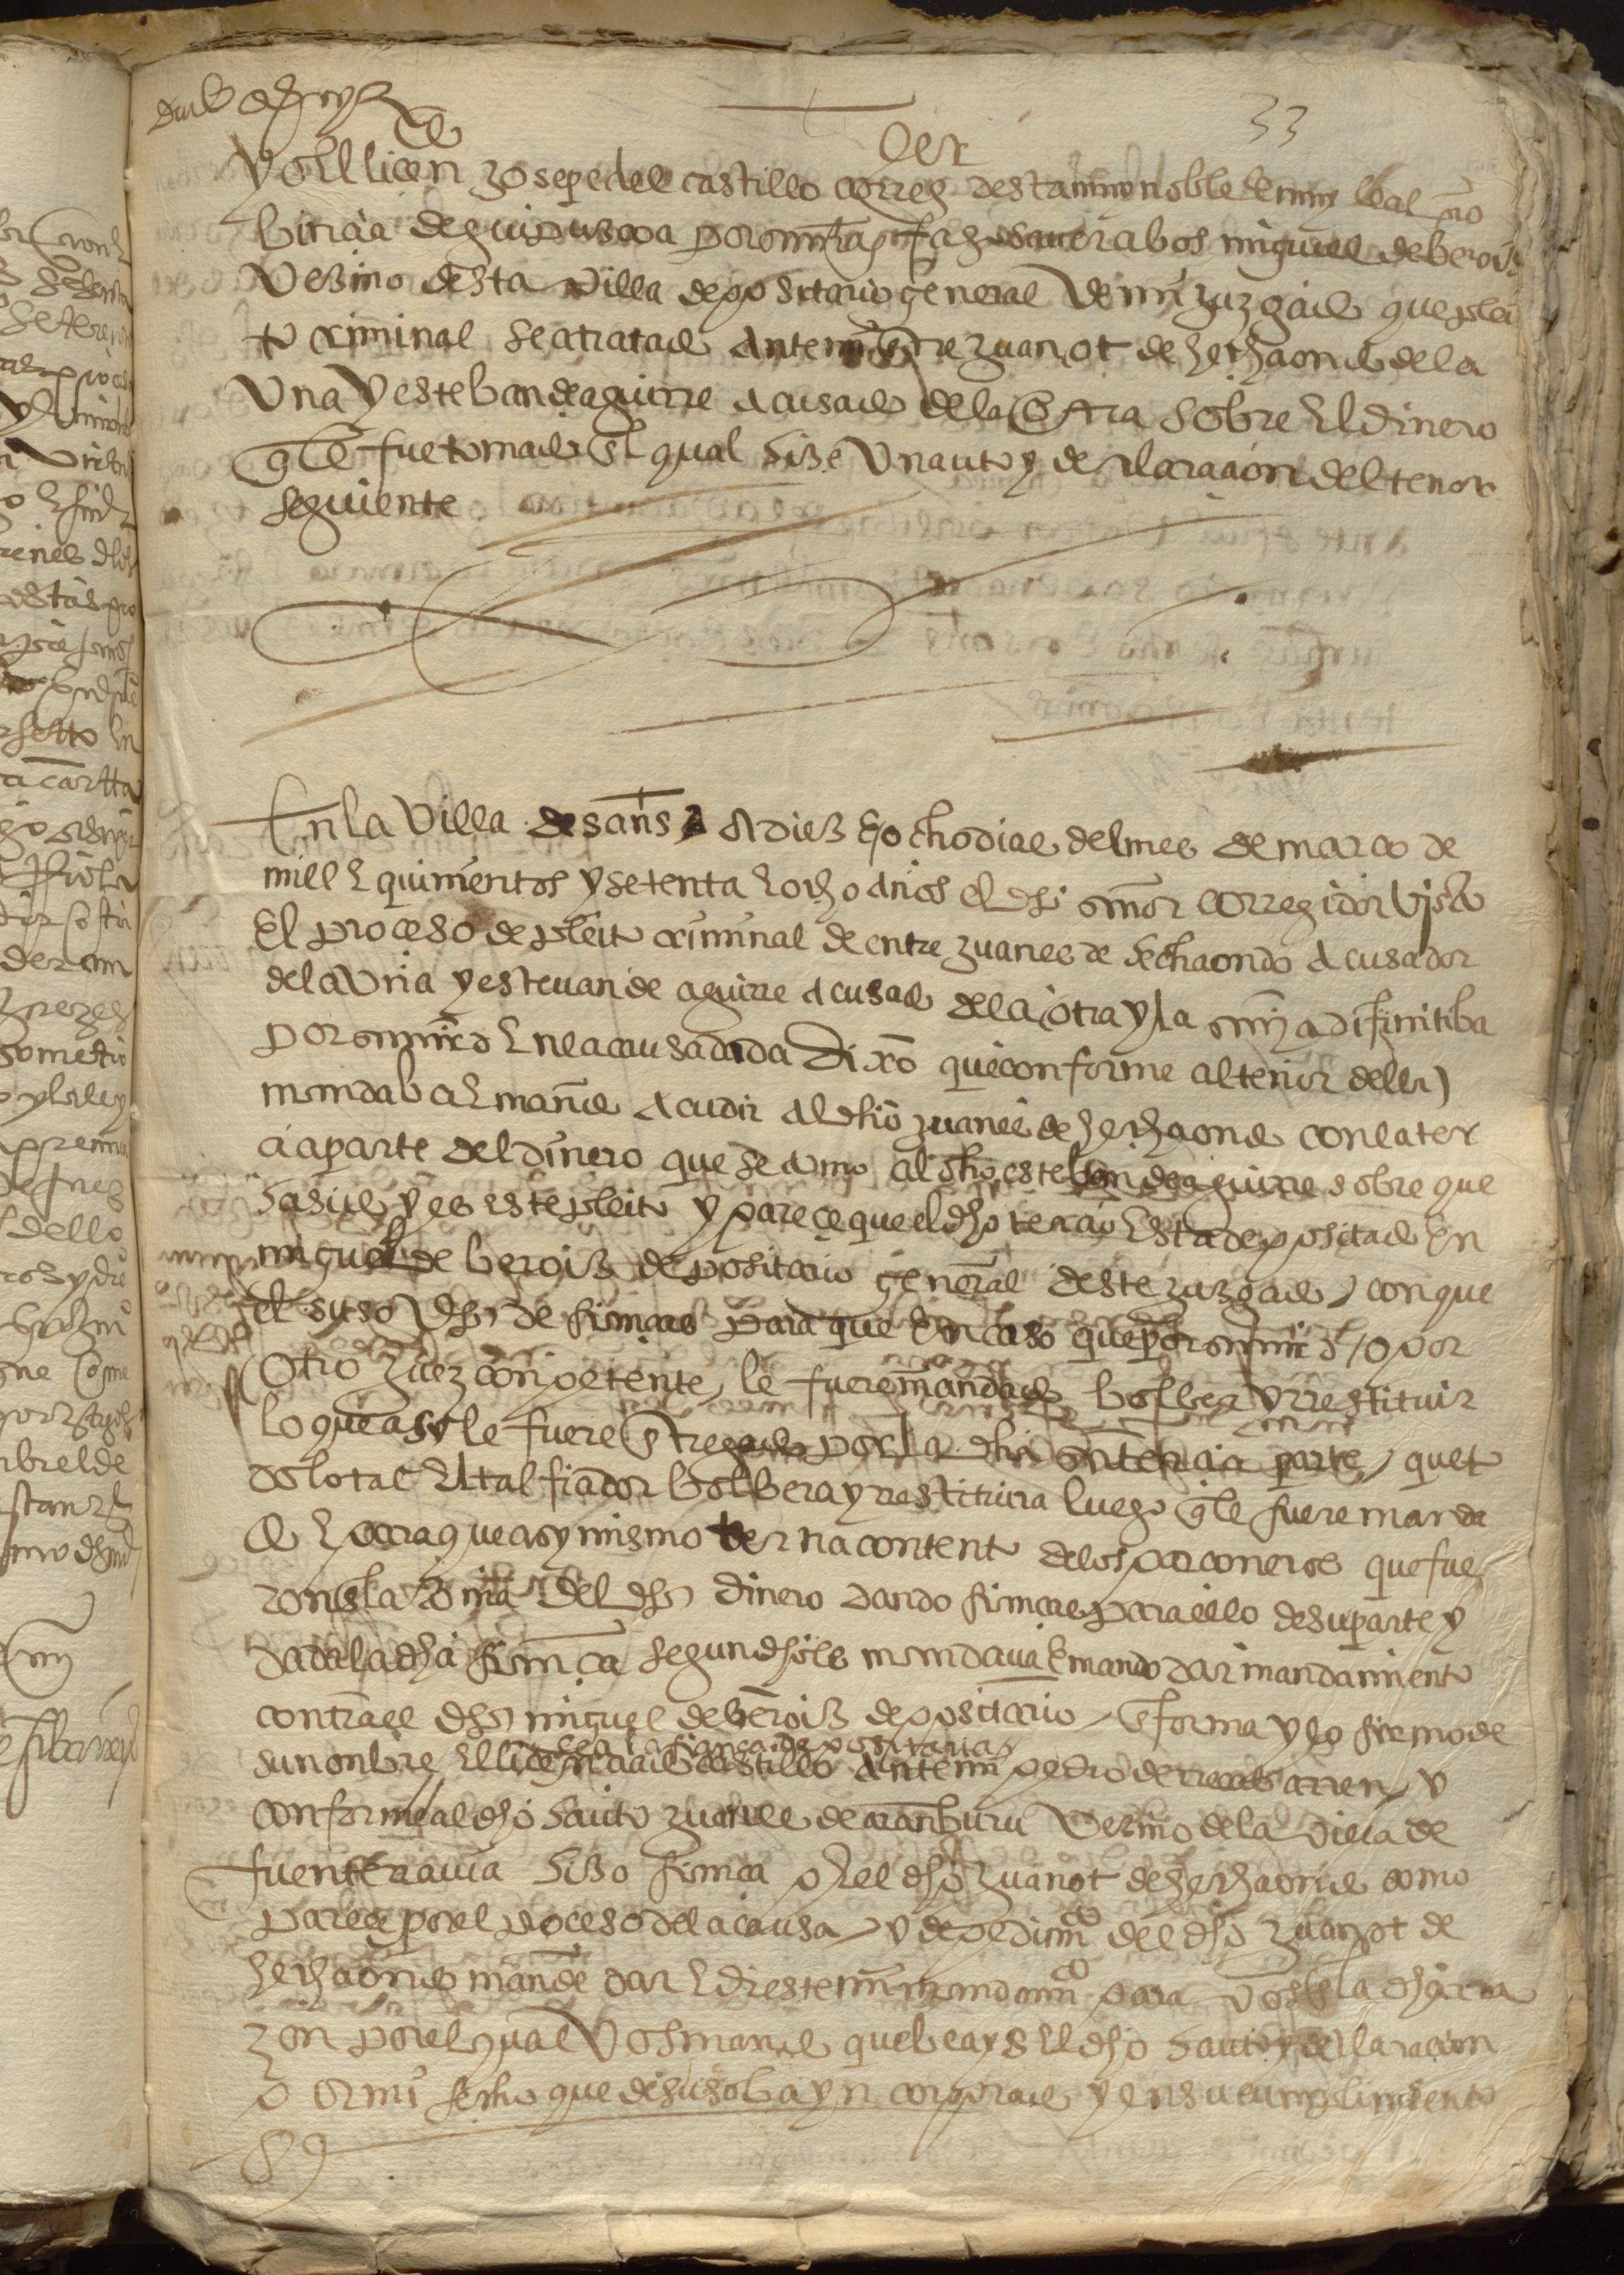 33
Yo el licen^do Josepe del castillo correg^dor desta muy noble E muy leal pro
bincia de guipuscoa por su mag^t fago saver a bos miguel de beroiz
Vezino desta villa depositario general de mi juzgado que plei
to criminal se a tratado ante mi Entre juanot de hechaondo de la
Una y esteban de aguirre acusado de la otra sobre El dinero
q le fue tomado En el qual hize Un auto y declaracion del tenor
seguiente
En la Villa de san s a diez E ocho dias del mes de março de
mill E quinientos y setenta E ocho años El dho señor corregidor visto
El proceso de pleito criminal de entre juanes de hechaondo acusador
de la Una y estevan de aguirre acusado de la otra y la s^nia difinitiba
por su m^d En la causa dada Dixo que conforme al tenor della
mandaba E mando acudir al dho juanes de hechaondo con la ter
cia parte del dinero que se tomo al dho esteban de aguirre sobre que
ha sido y es este pleito y parece que el dho tercio Esta depositado En
miguel de beroiz depositario general deste juzgado con que
el suso dho de fianças para que En caso que por su m^d o por
otro juez conpetente le fuere mandado bolber y restituir
lo que asy le fuere Entregado por la dha tercia parte que to
do lo tal El tal fiador bolbera y restituira luego q le fuere manda
do E para que asy mismo terna contento de los parconeros que fue
ron En la toma del dho dinero dando fianças para ello de su parte y
dada la dha fiança segun dho es mandava E mando dar mandamiento
contra el dho miguel de beroiz depositario En forma y lo firmo de
sea la fiança depositaria
su nonbre El licenciado castillo ante mi pedro de recarren y
conforme al dho auto juanes de aranburu Vezino de la villa de
fuenterravia hizo fiança por el dho juanot de hechaondo como
parece por el proceso de la causa y de pedim^to del dho juanot de
hechaondo mande dar E di este mi mandam^to para vos En la dha ra
zon por el qual Vos mando que beays El dho auto y declaracion
por mi fecho que de suso ba yncorporado y en su cumplimiento